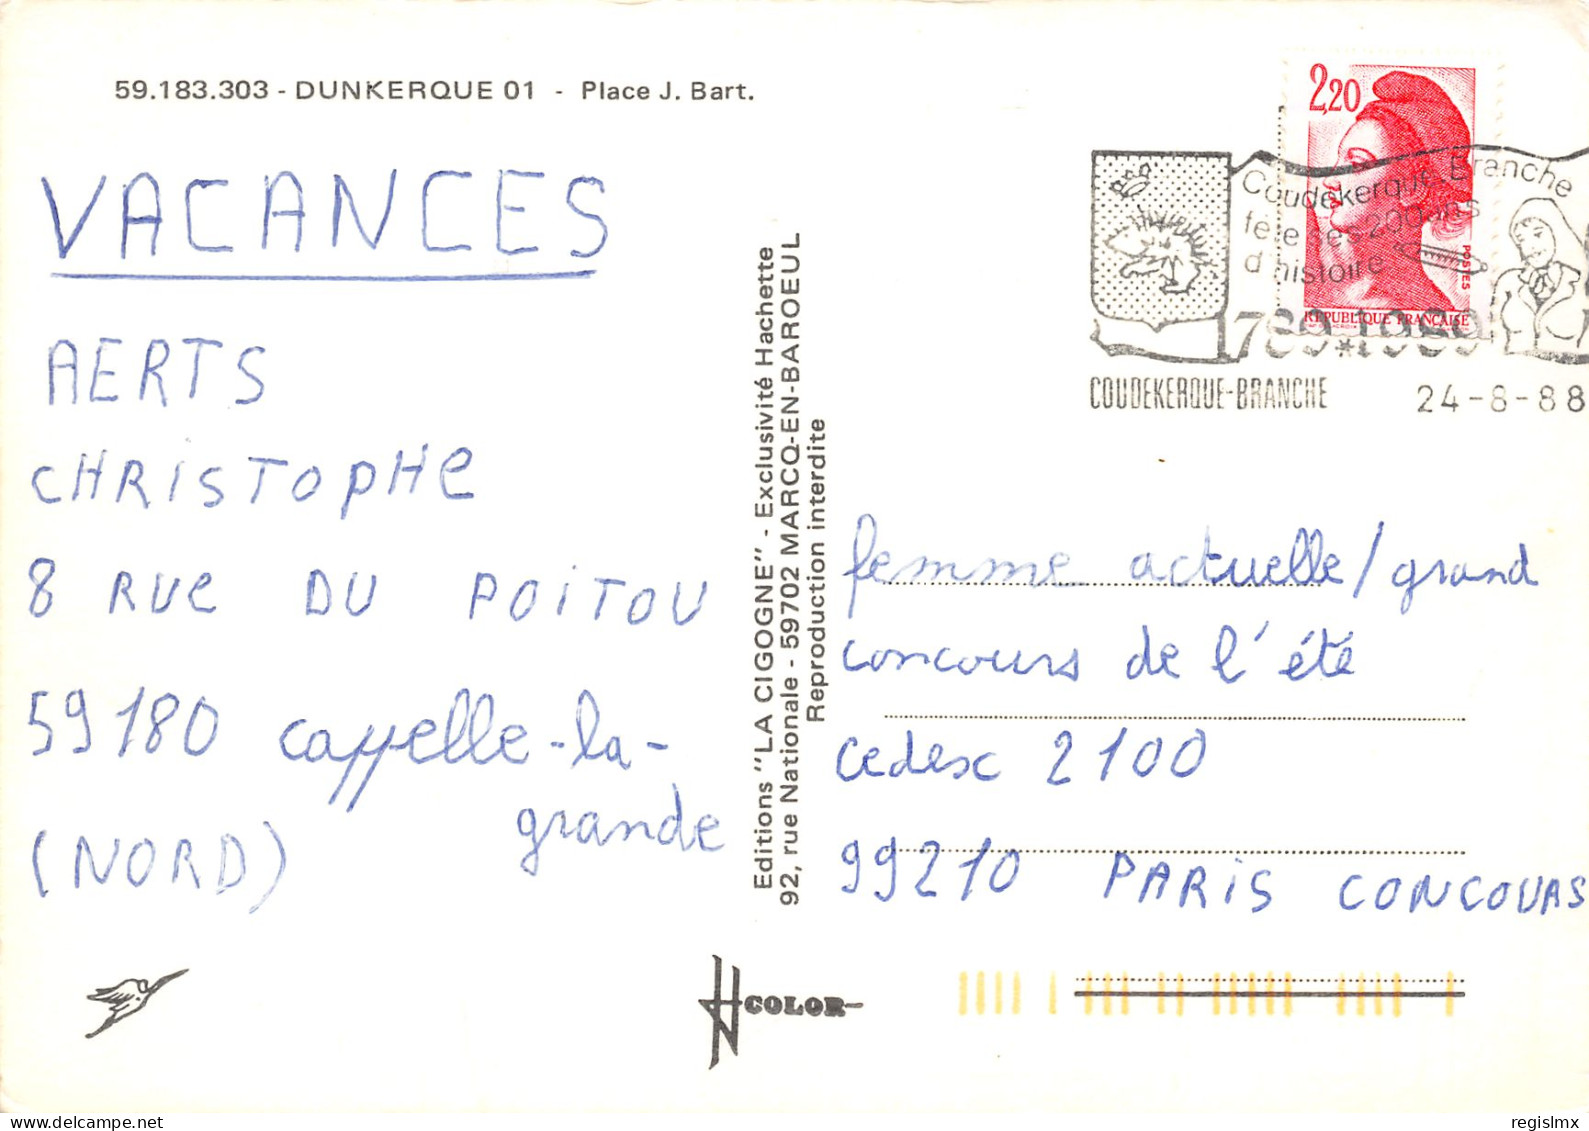 59.183.303 - DUNKERQUE 01 - Place J. Bart.
VACANCES
AERTS
CHRISTOPHe
8 RUe DU POiTOU
59180 cappelle-la-
grande
(NORD)
Editions "LA CIGOGNE" - Exclusivité Hachette
92, rue Nationale - 59702 MARCQ-EN-BAROEUL
Reproduction interdite
2,20
POSTES
REPUBLIQUE FRANÇAISE
Coudekerque Branche
fête ses 200 ans
d'histoire
789*1989
COUDEKERQUE-BRANCHE 24-8-88
femme actuelle/grand
concours de l'été
cedex 2100
99210 PARiS CONCOURS
COLOR
regislmx